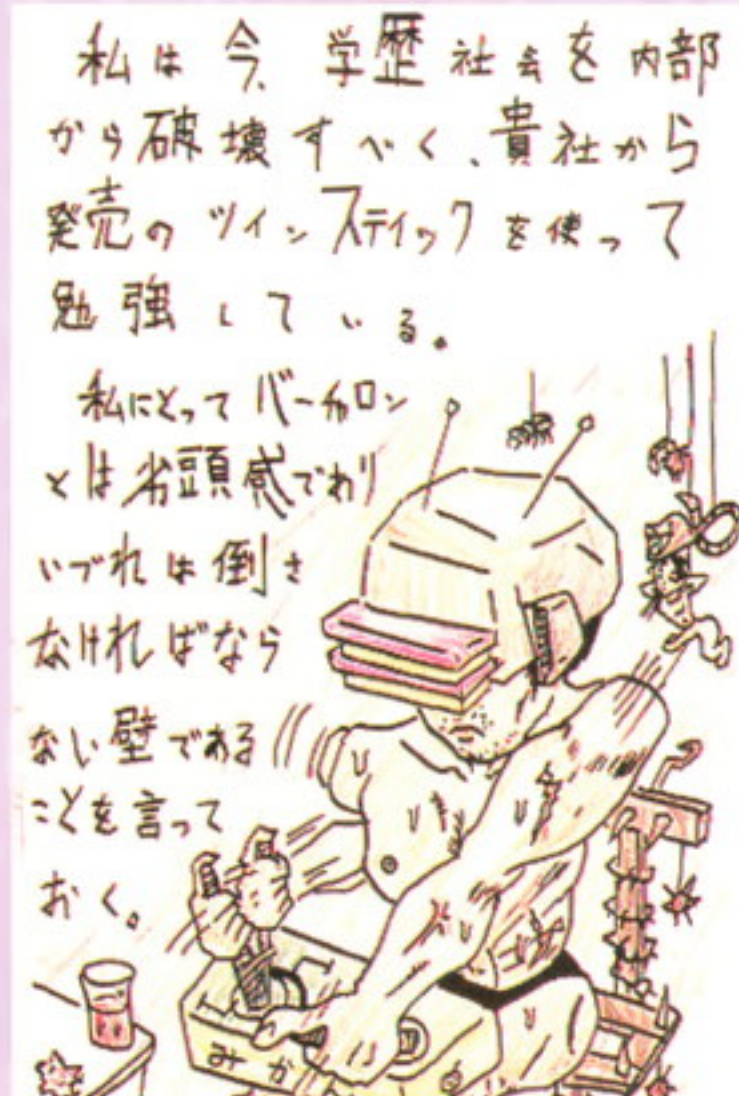 私は今、学歴社会を内部
から破壊すべく、貴社から
発売のツインスティックを使って
勉強している。
私にとってバーチャロン
とは劣頭感であり
いづれは倒さ
なければなら
ない壁である
ことを言って
おく。
みか